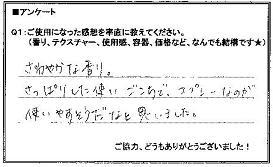 ■アンケート
Q1:ご使用になった感想を率直に教えてください。
(香り、テクスチャー、使用感、容器、価格など、なんでも結構です★)
さわやかな香り。
さっぱりした使いごこちで、スプレーなのが
使いやすそうだなと思いました。
ご協力、どうもありがとうございました!